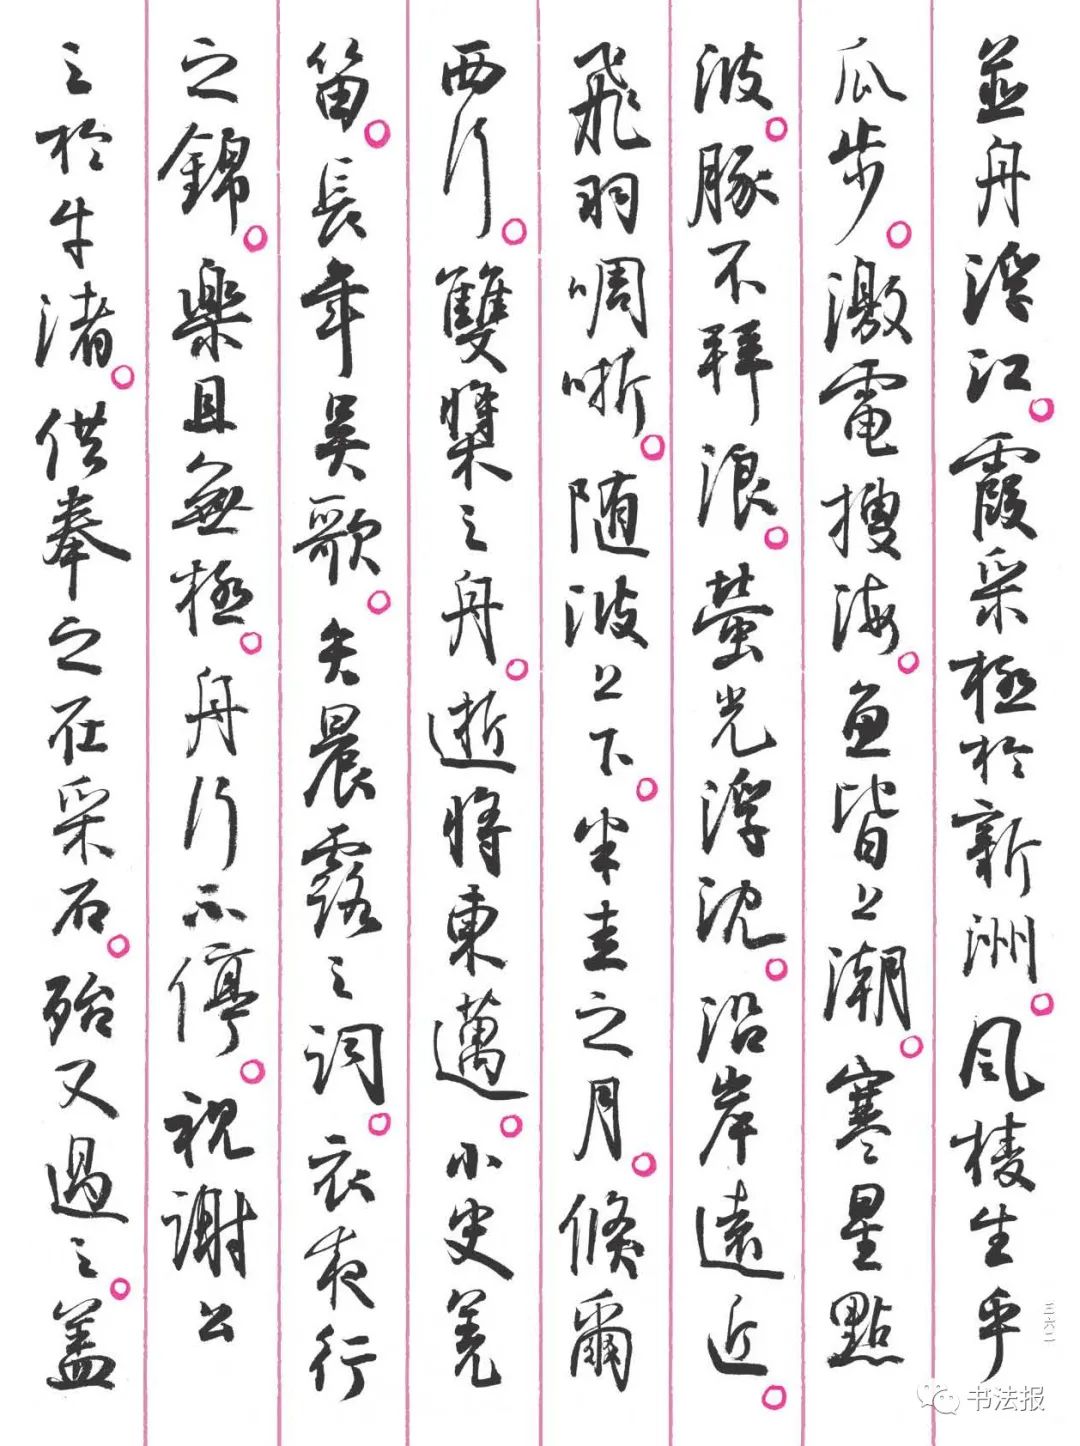 並舟浮江。霞采極於新洲。風棱生乎
瓜步。激電搜海。魚皆上潮。寒星點
波。豚不拜浪。螢光浮沈。沿岸遠近。
飛羽啁哳。随波上下。半圭之月。倐爾
西行。雙槳之舟。逝將東邁。小史羌
笛。長年吴歌。矢晨露之詞。衣夜行
之錦。樂且無極。舟行不停。祝謝公
之於牛渚。供奉之在采石。殆又過之。盖
三六二
书法报